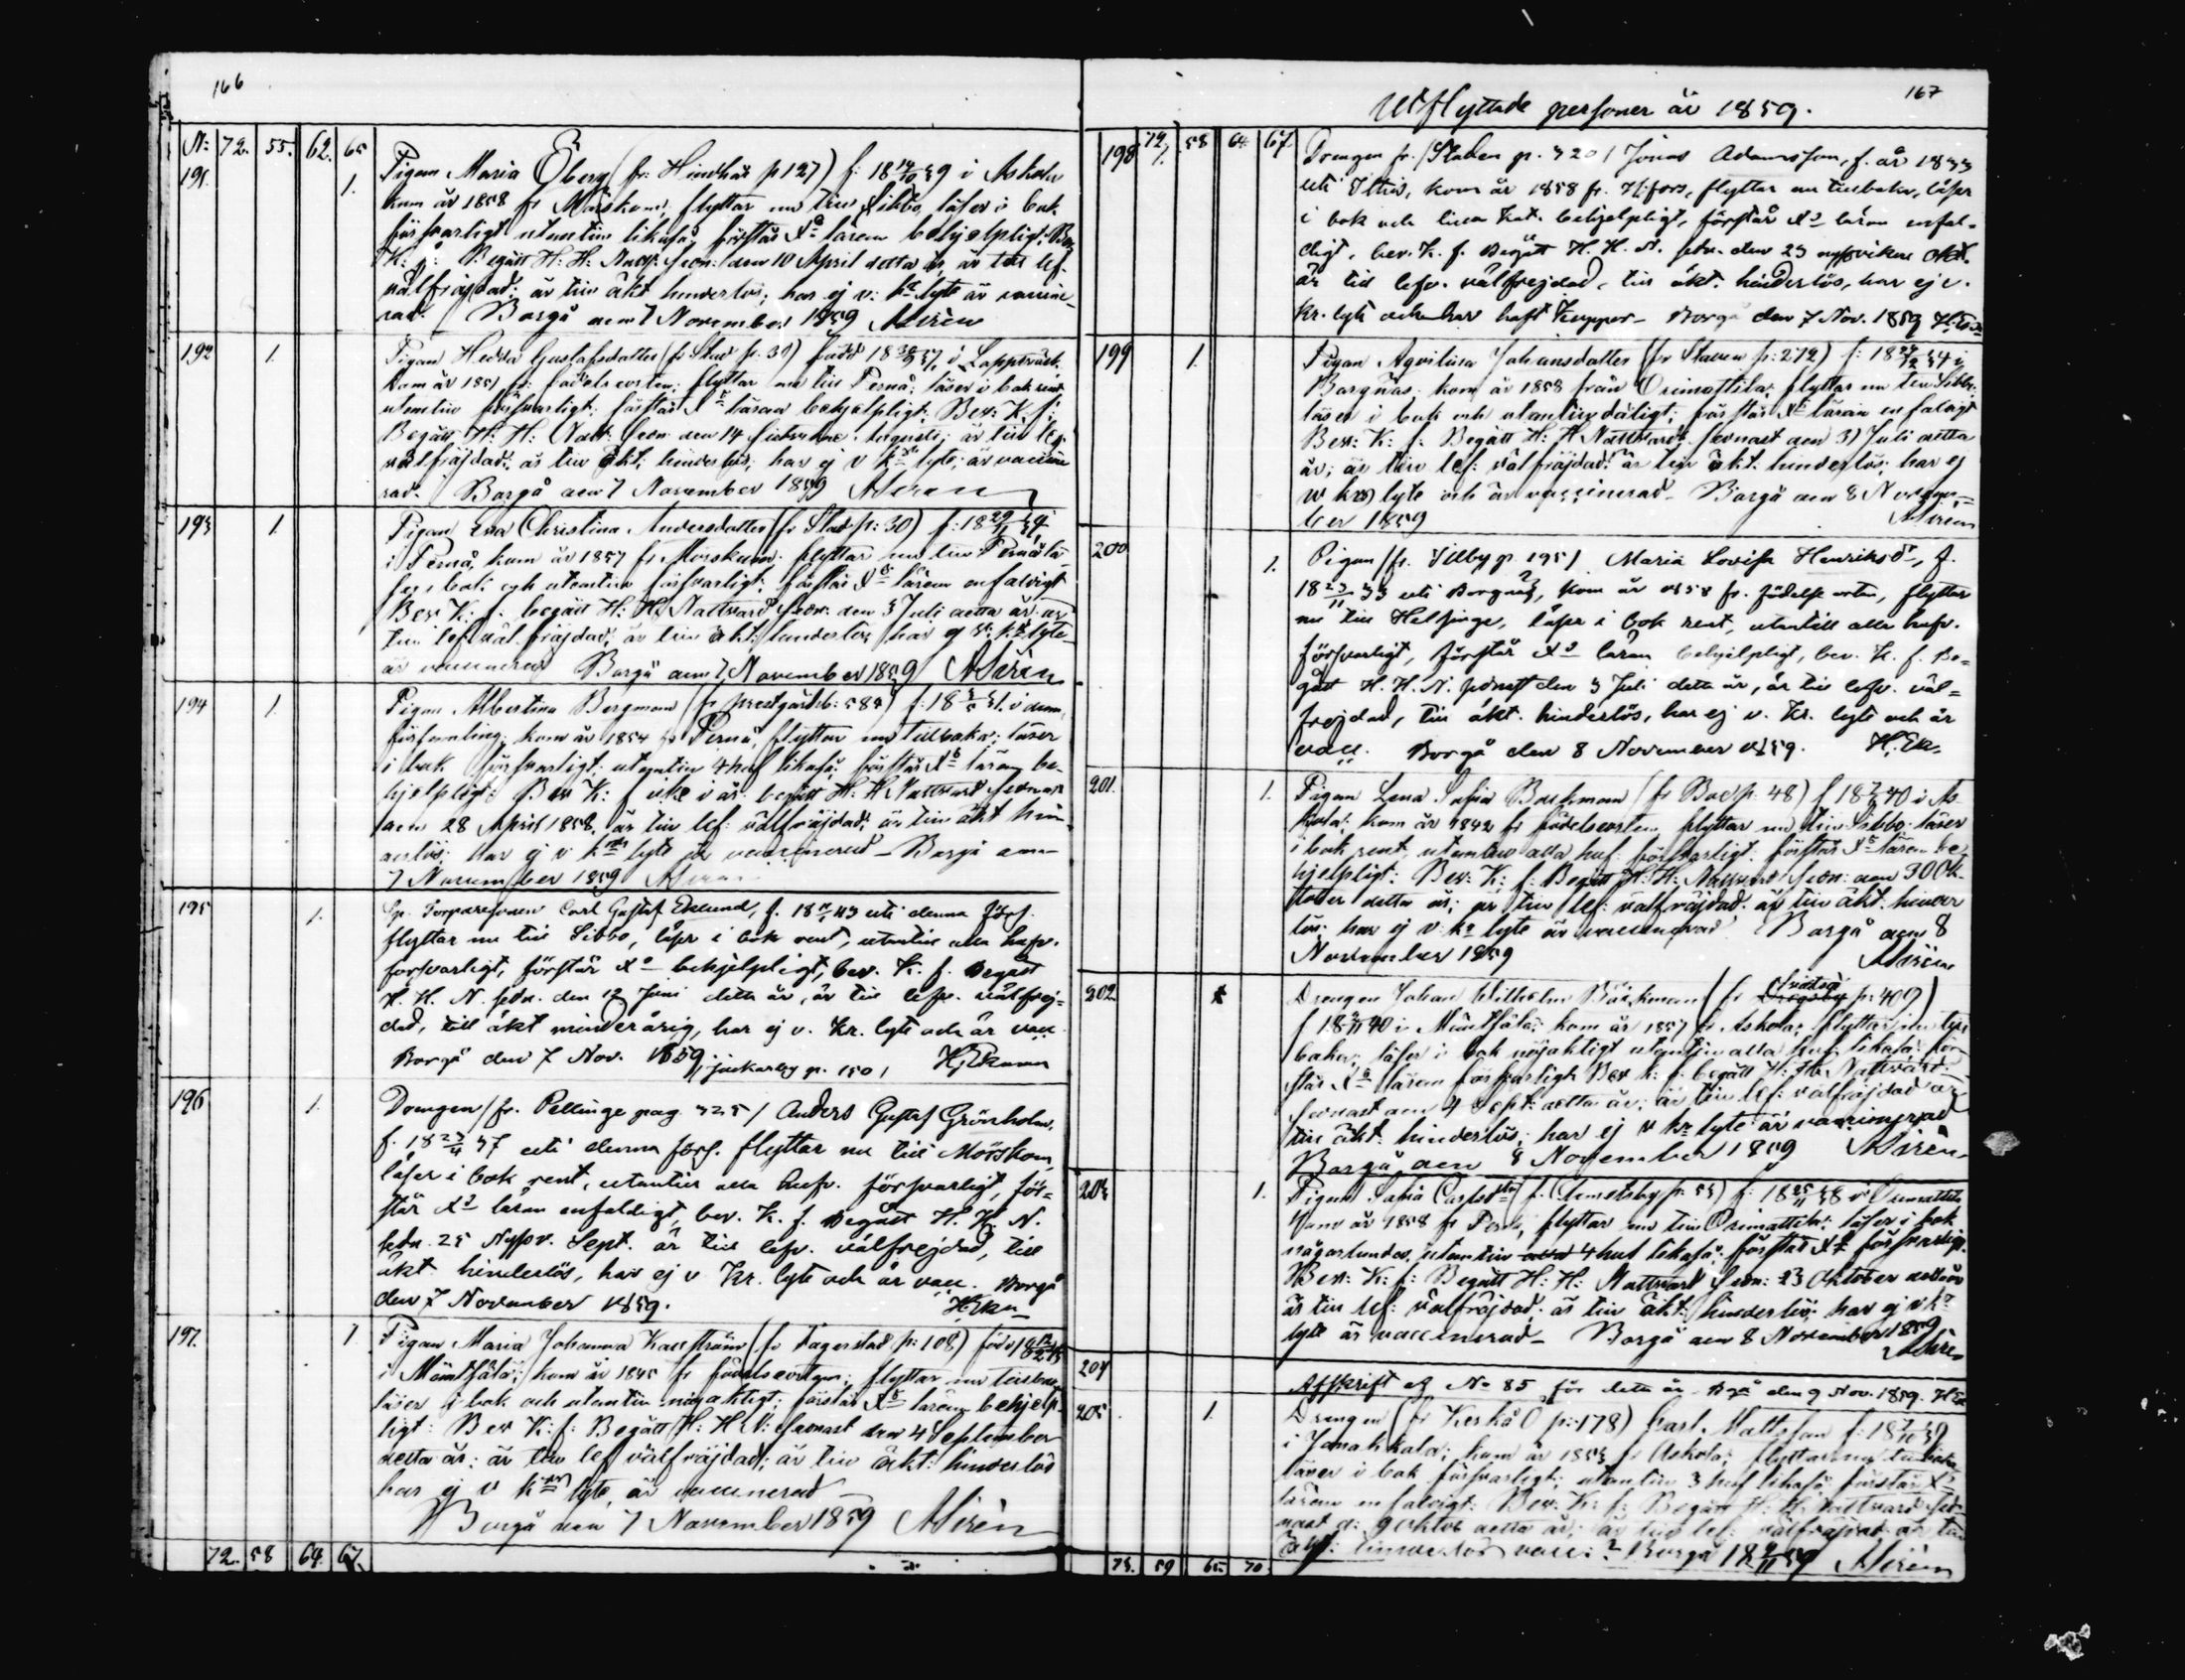 166
N: 72. 55. 62. 65
191. 1. Pigan Maria Öberg (fr: Hindhår p 127) f: 18 14/10 39 i Askola
kom år 1858 fr Mörskom, flyttar nu till Sibbo, läser i bok
försvarligt utantill likaså, förstår Xs läran behjelpligt: Bev:
K: f: Begått H: H: Nattv: sedn: den 10 April detta år, är till lef.
välfräjdad: är till äkt hinderlös; har ej v: kr lyte är vaccine-
rad. Borgå den 7 November 1859 Alirén
192 1. Pigan Hedda Gustafsdotter (fr Stad p. 30) född 18 37, i Lappträsk
kom år 1851 fr: födelseorten: flyttar nu till Pernå: läser i bok rent
utantill försvarligt: förstår Xs läran behjelpligt: Bev: K: f:
Begått H: H: Nattv: sedn: den 14 Augusti: är till lef:
välfräjdad: är till äkt: hinderlös; har ej v kr lyte; är vaccine
rad. Borgå den 7 November 1859 Alirén
193 1. Pigan Eva Christina Andersdotter (fr Stad p: 30) f: 18 29/11 34
i Pernå, kom år 1857 fr Morskom: flyttar nu till Pernå lä-
ser i bok och utantill försvarligt: förstår Xs läran enfaldigt
Bev K: f: begått H: H: Nattvard sedn: den 3 Juli detta år: är
till lef: väl fräjdad: är till äkt: hinderlös har ej v: kr lyte
är vaccinerad Borgå den 7 November 1859 Alirén
194 1. Pigan Albertina Bergman (fr prestgårdsb: 584) f: 18 31. i denna
församling; kom år 1854 fr Pernå, flyttar nu tillbaka; läser
i bok försvarligt; utantill 4 huf likaså; förstår Xs läran be-
hjelpligt: Bev K: f i år: begått H: H: Nattvard sednast
den 28 April 1858, är till lef: välfräjdad; är till äkt hin-
derlös; har ej v: krs lyte är vaccinerad - Borgå den
7 November 1859 Alirén
195 1. Sp. Torparesonen Carl Gustaf Eklund, f. 18 43 uti denna förs.
flyttar nu till Sibbo, läser i bok rent, utantill alla hufv.
försvarligt, förstår Xs behjelpligt, bev. K. f. Begått
H. H. N. sedn. den 12 Juni detta år, är till lefv. välfrej=
dad, till äkt minderårig, har ej v. kr. lyte och är vacc
Borgå den 7 Nov. 1859, jackarby p. 150 / H. Ekman
196 1. Drengen / fr. Pellinge pag. 325 / Anders Gustaf Grönholm,
f. 18 23/4 37 uti denna förs. flyttar nu till Mörskom,
läser i bok rent, utantill alla hufv. försvarligt, för=
står Xs läran enfaldigt, bev. K. f. Begått H. H. N.
sedn. 25 Nyssv. Sept. är till lefv. välfrejdad, till
äkt hinderlös, har ej v. kr. lyte och är vacc. Borgå
den 7 November 1859. H. Ekn
197. 1 Pigan Maria Johanna Kallström (fr Fagerstad p: 108) född 18 12/2 45
i Mäntsälä; kom år 1845 fr födelseorten; flyttar nu tillbaka
läser i bok och utantill nöjaktigt: förstår Xs läran behjelp-
ligt: Bev K: f: Begått H: H: N: sednast den 4 September
detta år: är till lef välfräjdad; är till äkt: hinderlös
har ej v krs lyte, är vaccinerad
Borgå den 7 November 1859 Alirén
72. 58 64. 67.
Utflyttade personer år 1859. 167
198 72 1. 58 64 67 Drengen fr. / Staden p. 320 / Jonas Adamsson, f. år 1833
uti Ittis, kom år 1858 fr. H:fors, flyttar nu tillbaka, läser
i bok och lilla kat. behjelpligt, förstår Xs läran enfal-
digt, bev. K. f. Begått H. H. N. sedn. den 23 nyssvikne Okt.
är till lefv. välfrejdad, till äkt. hinderlös, har ej v.
kr. lyte och har haft koppor - Borgå den 7 Nov. 1859 H. Ek
199 1. Pigan Agvilina Johansdotter (fr Staden p: 272) f: 18 34 i
Borgnäs; kom år 1858 från Orimattila; flyttar nu till Sibbo
läser i bok och utantill dåligt; förstår Xs läran enfaldigt
Bev: K: f: Begått H: H: Nattvard: sednast den 31 Juli detta
år; är till lef: välfräjdad: är till äkt. hinderlös; har ej
v krs lyte och är vaccinerad - Borgå den 8 Novem=
ber 1859 Alirén
200 1. Pigan / fr. Illby p. 195 / Maria Lovisa Henriksdr, f.
18 23/11 33 uti Borgnäs, kom år 1858 fr. födelse orten, flyttar
nu till Helsinge, läser i bok rent, utantill alla hufv.
försvarligt, förstår Xs läran behjelpligt, bev. K. f. Be=
gått H. H. N. sednast den 3 Juli detta år, är till lefv. väl=
frejdad, till äkt. hinderlös, har ej v. kr. lyte och är
vacc. Borgå den 8 November 1859. H. Ek.
201. 1. Pigan Lena Sofia Backman (fr Boe p: 48) f 18 40 i As-
kola; kom år 1842 fr födelseorten, flyttar nu till Sibbo. läser
i bok rent, utantill alla huf: försvarligt. förstår Xs läran be
hjelpligt: Bev: K: f: Begått H: H: Nattvard sedn: den 30 Ok-
tober detta år; är till lef: välfräjdad. är till äkt. hinder
lös; har ej v: kr lyte är vaccinerad Borgå den 8
November 1859 Alirén
202 1 Drengen Johan Wilhelm Böckman (fr p: 409)
f 18 40 i Mäntsälä; kom år 1857 fr Askola; flyttar nu till
baka; läser i bok nöjaktigt utantill alla huf: likaså: för-
står Xs läran försvarligt Bev K: f. begått H: H: Nattvard
sednast den 4 Sept: detta år; är till lef: välfräjdad är
till äkt: hinderlös; har ej v kr lyte är vaccinerad
Borgå den 8 November 1859 Alirén
203 1. Pigan Sofia Carlsdtr (fr. p: 53) f: 18 25/11 38 i Orimattila
kom år 1858 fr , flyttar nu till Orimattila; läser i bok
någorlunda, utantill 4 huf likaså: förstår Xs försvarligt.
Bev: K: f: Begått H: H: Nattvard sedn: 23 Oktober detta år
är till lef: välfräjdad; är till äkt: hinderlös; har ej v kr
lyte är vaccinerad - Borgå den 8 November 1859
Alirén
204 Afskrift af No 85 för detta år - Bgå den 9 Nov. 1859. H Ek
205 1. Drengen (fr Kerkå O p: 178) Carl Mattsson f: 18 39
i Janakkala; kom år 1853 fr Askola; flyttar nu tillbaka
läser i bok försvarligt; utantill 3 huf likaså förstår Xs
läran enfaldigt: Bev: K: f: Begått H: H: Nattvard sed-
nast d: 9 Oktob detta år; är till lef: välfräjdad är till
äkt: hinderlös vacc:? Borgå 18 9/11 59 Alirén
73. 59 65. 70.